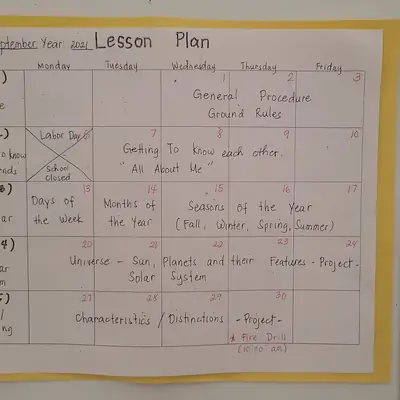 September Year 2021 Lesson Plan
Monday Tuesday Wednesday Thursday Friday
1 2 3
General Procedure
Ground Rules
Labor Day 6 7 8 9 10
School closed
Getting To know each other.
"All About Me"
13 14 15 16 17
Days of the Week
Months of the Year
Seasons of the Year
(Fall, Winter, Spring, Summer)
20 21 22 23 24
Universe - Sun, Planets and their Features - Project -
Solar System
27 28 29 30
Characteristics / Distinctions - Project -
* Fire Drill
(10:00 am)